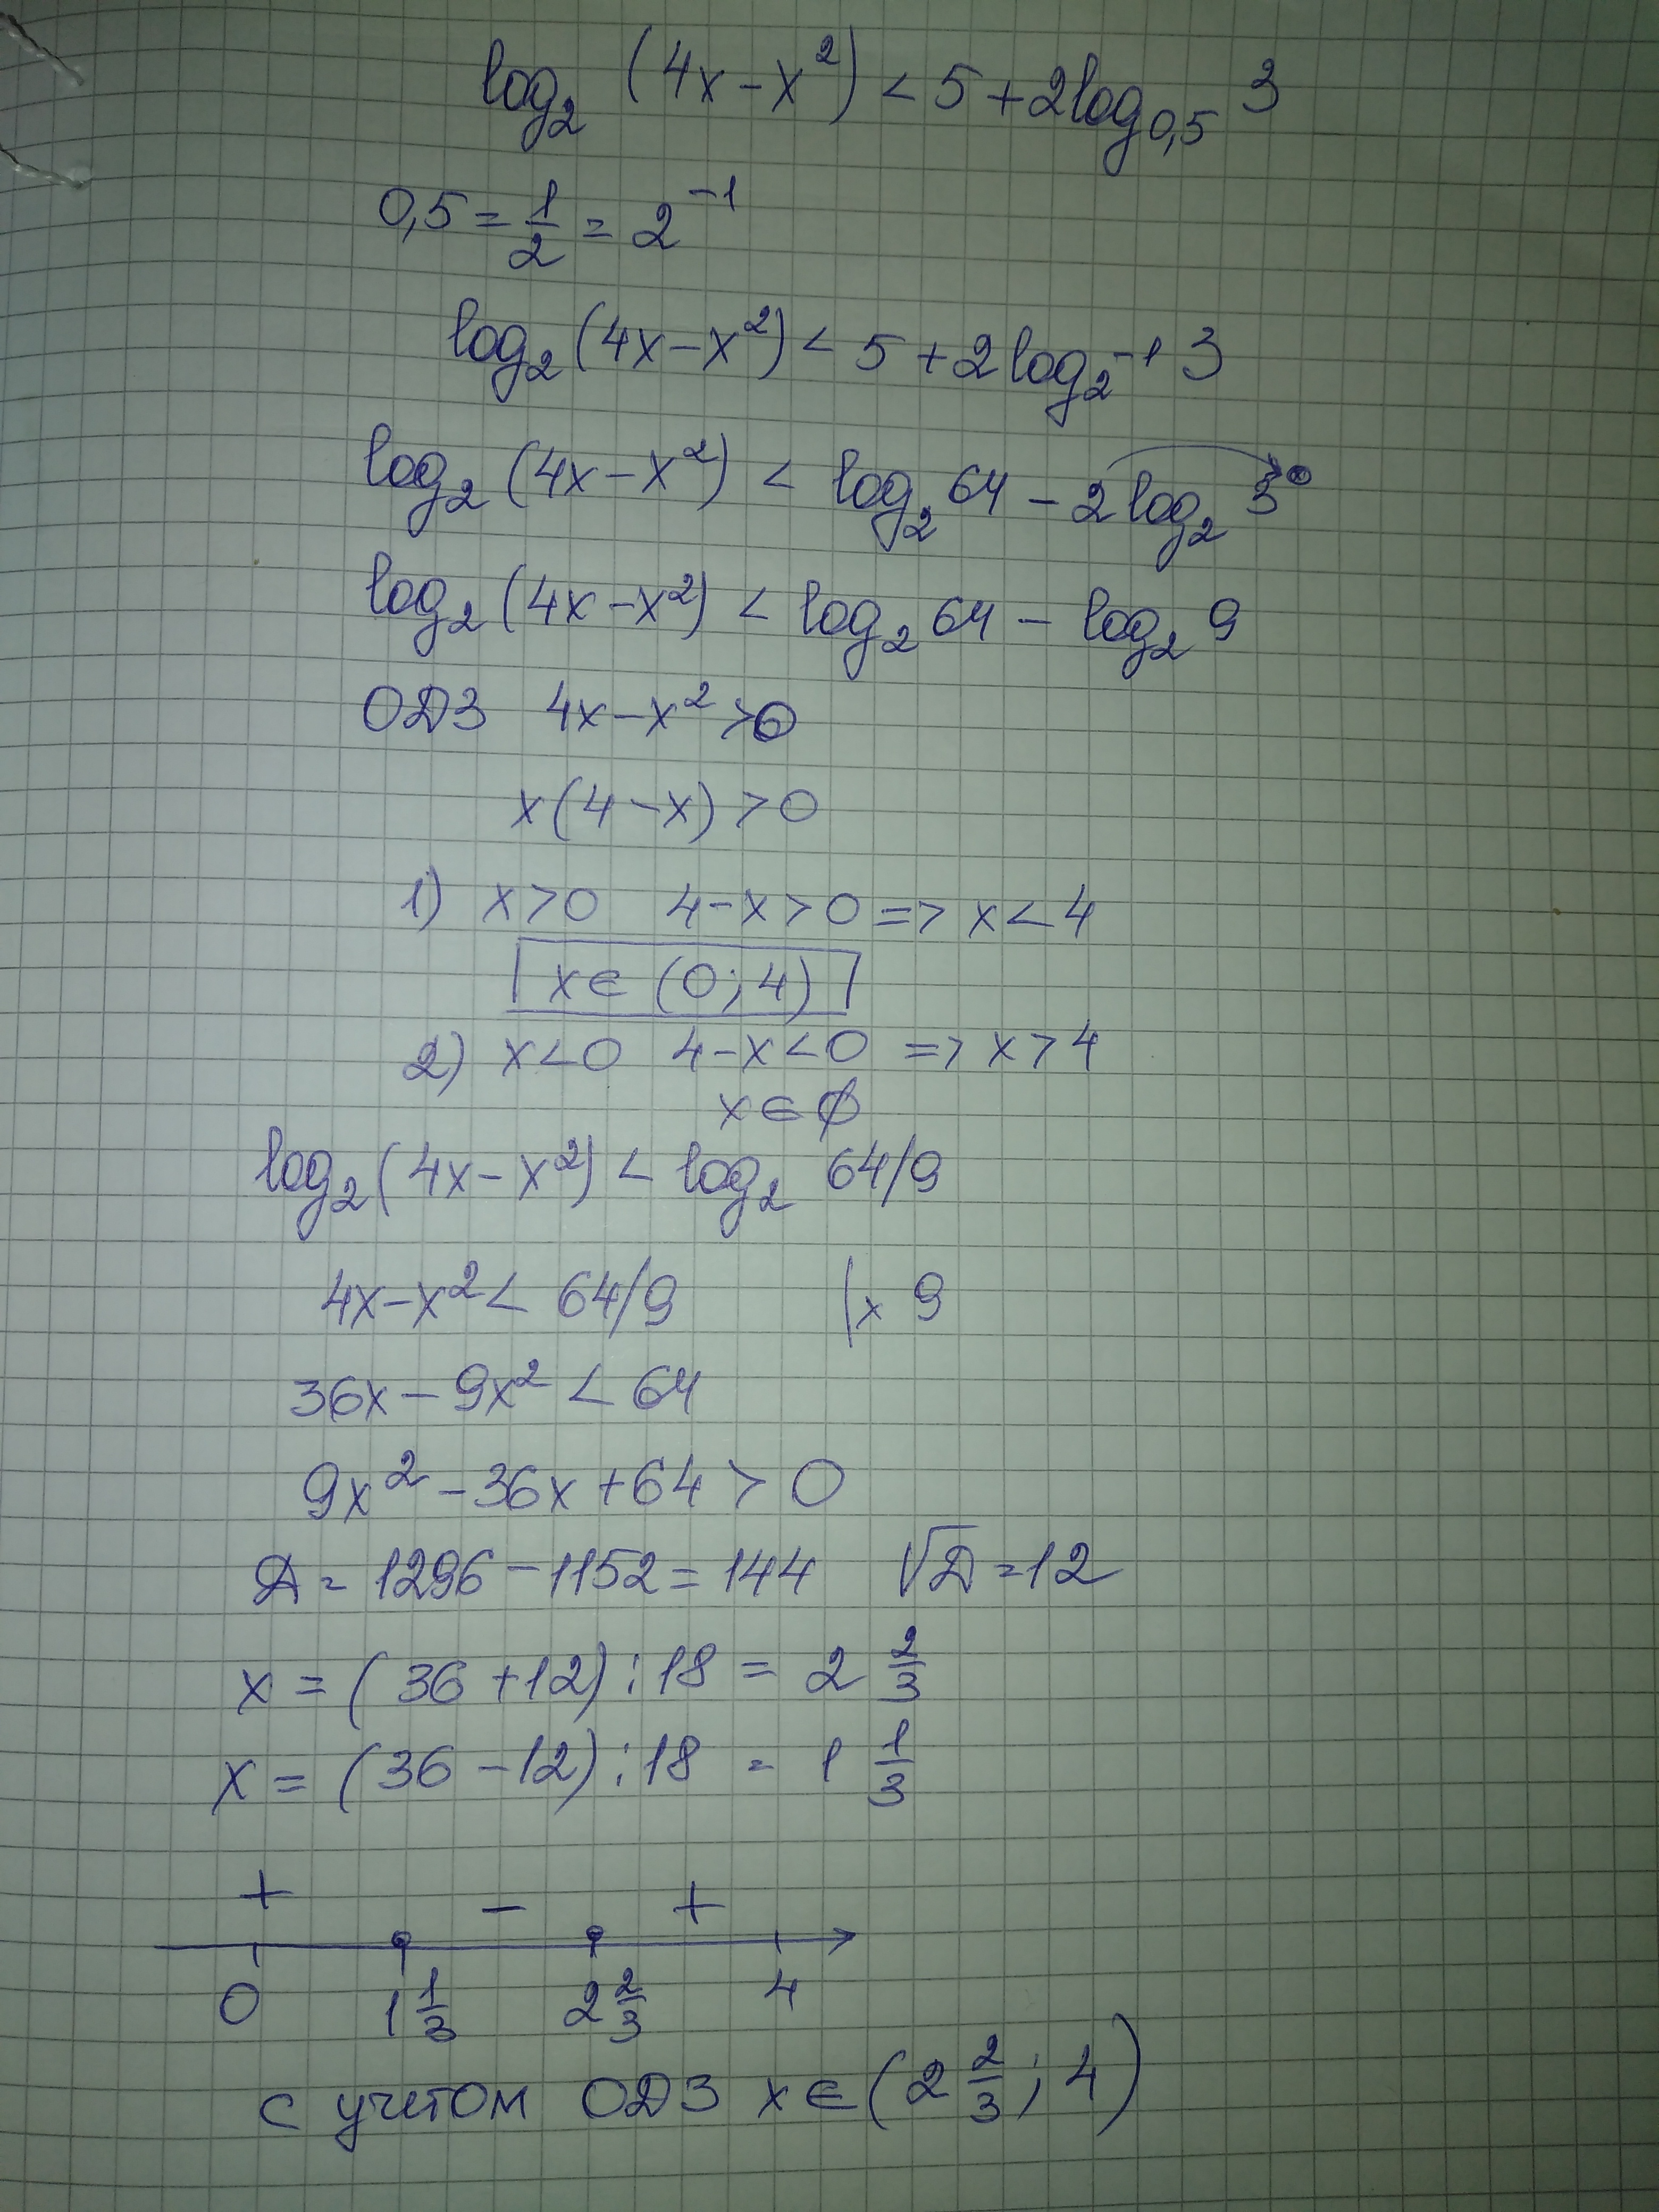 log₂ (4x-x²) < 5 + 2log₀,₅ 3
0,5 = 1/2 = 2⁻¹
log₂ (4x-x²) < 5 + 2log₂⁻¹ 3
log₂ (4x-x²) < log₂ 64 - 2log₂ 3
log₂ (4x-x²) < log₂ 64 - log₂ 9
ОДЗ 4x-x² >0
x(4-x) >0
1) x>0 4-x>0 => x<4
x∈(0;4)
2) x<0 4-x<0 => x>4
x∈∅
log₂(4x-x²) < log₂ 64/9
4x-x² < 64/9 |x 9
36x - 9x² < 64
9x² - 36x + 64 > 0
Д = 1296 - 1152 = 144 √Д = 12
x = (36 + 12) : 18 = 2 2/3
x = (36 - 12) : 18 = 1 1/3
+ - +
0 1 1/3 2 2/3 4
с учетом ОДЗ x∈(2 2/3; 4)